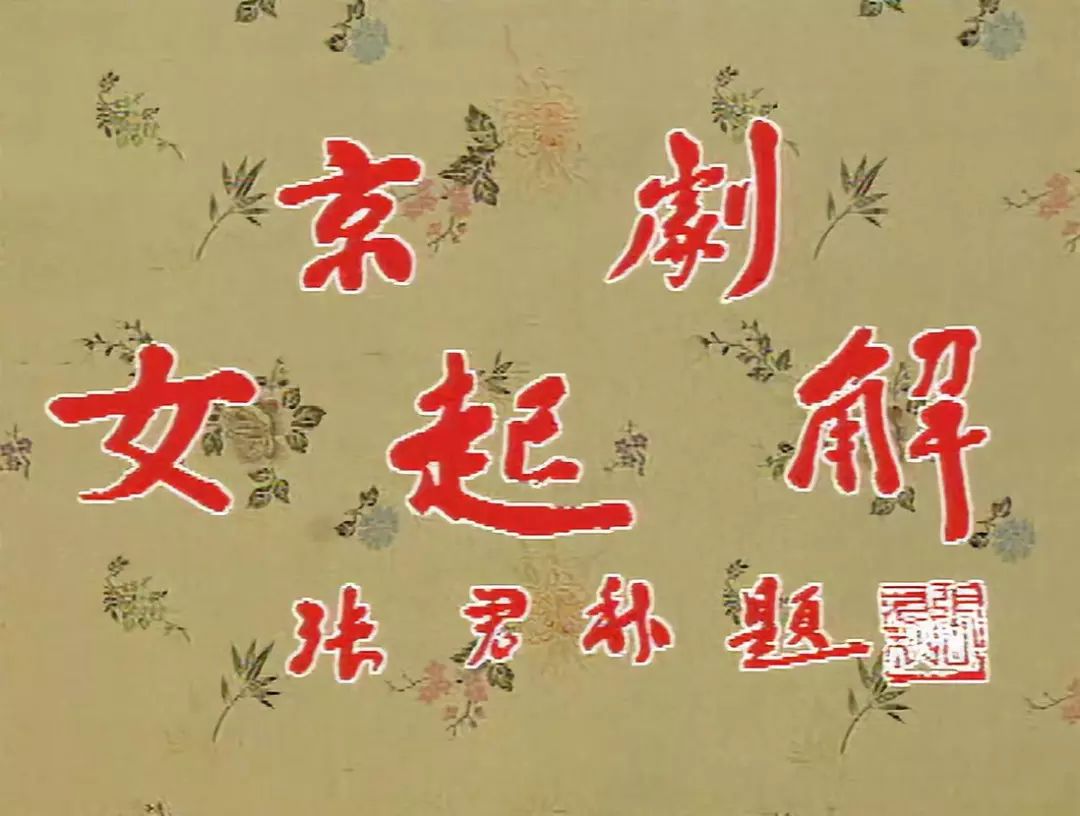 京劇
女起解
张君秋题